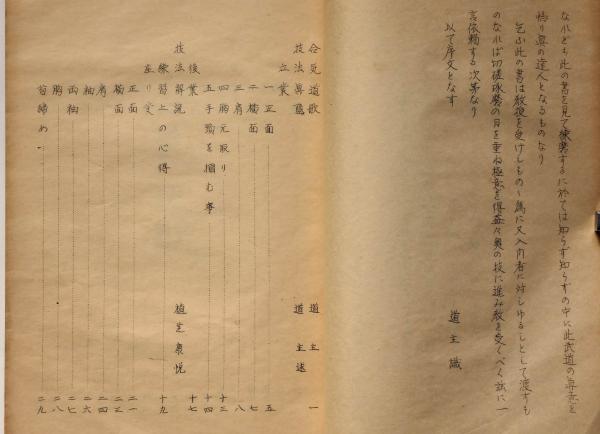 なれども此の書を見て練磨するに於ては知らず知らずの中に此武道の真意を
悟り真の達人となるものなり
乞ふ此の書は教授を受けしもの
のなれば切磋琢磨の日を重ね極意を得益々奥の技に進み教を受くべく
言依頼する次第なり
以て序文となす
道主識
合気道歌 道主 一
技法真髄 道主述
立業
一正面 五
二横面 七
三肩 八
四胸元取り 十三
五手頸を掴む事 十四
後業 十七
技法解説 植芝
練習上の心得 十九
座り業
正面 二一
横面 二三
肩 二四
袖 二六
両袖 二七
胸 二八
首締め 二九